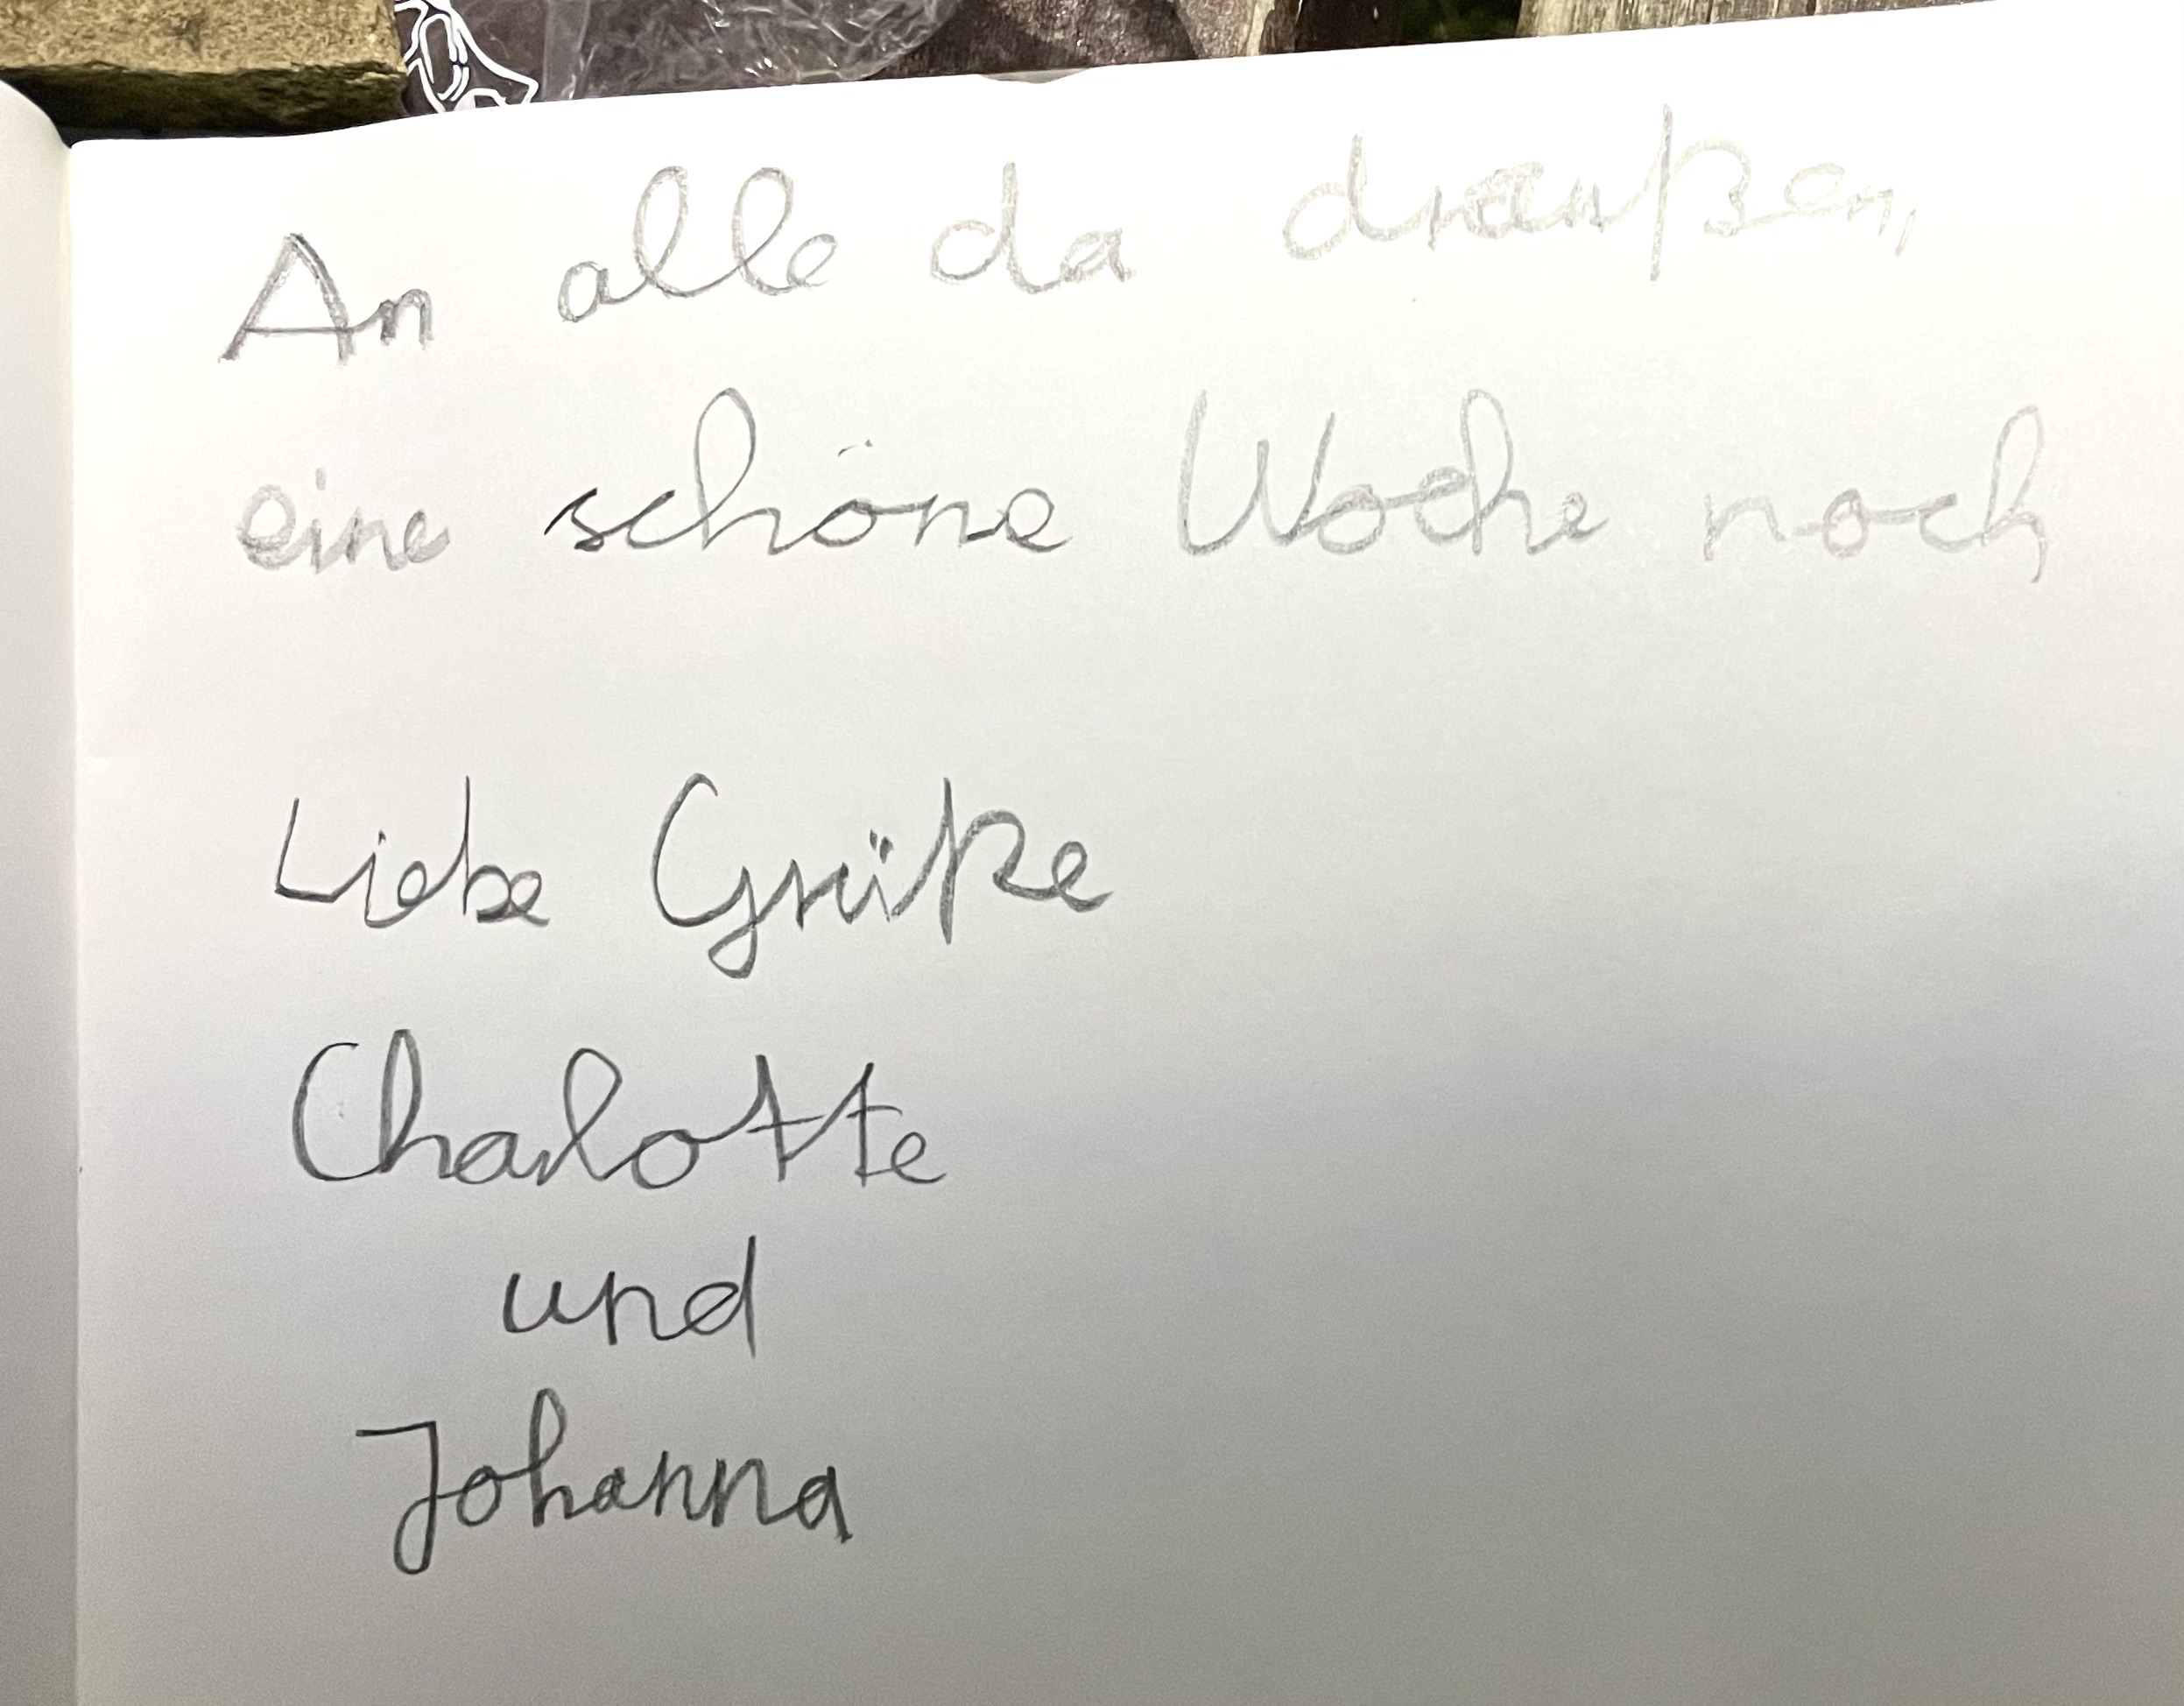 An alle da draußen,
eine schöne Woche noch
Liebe Grüße
Charlotte
und
Johanna